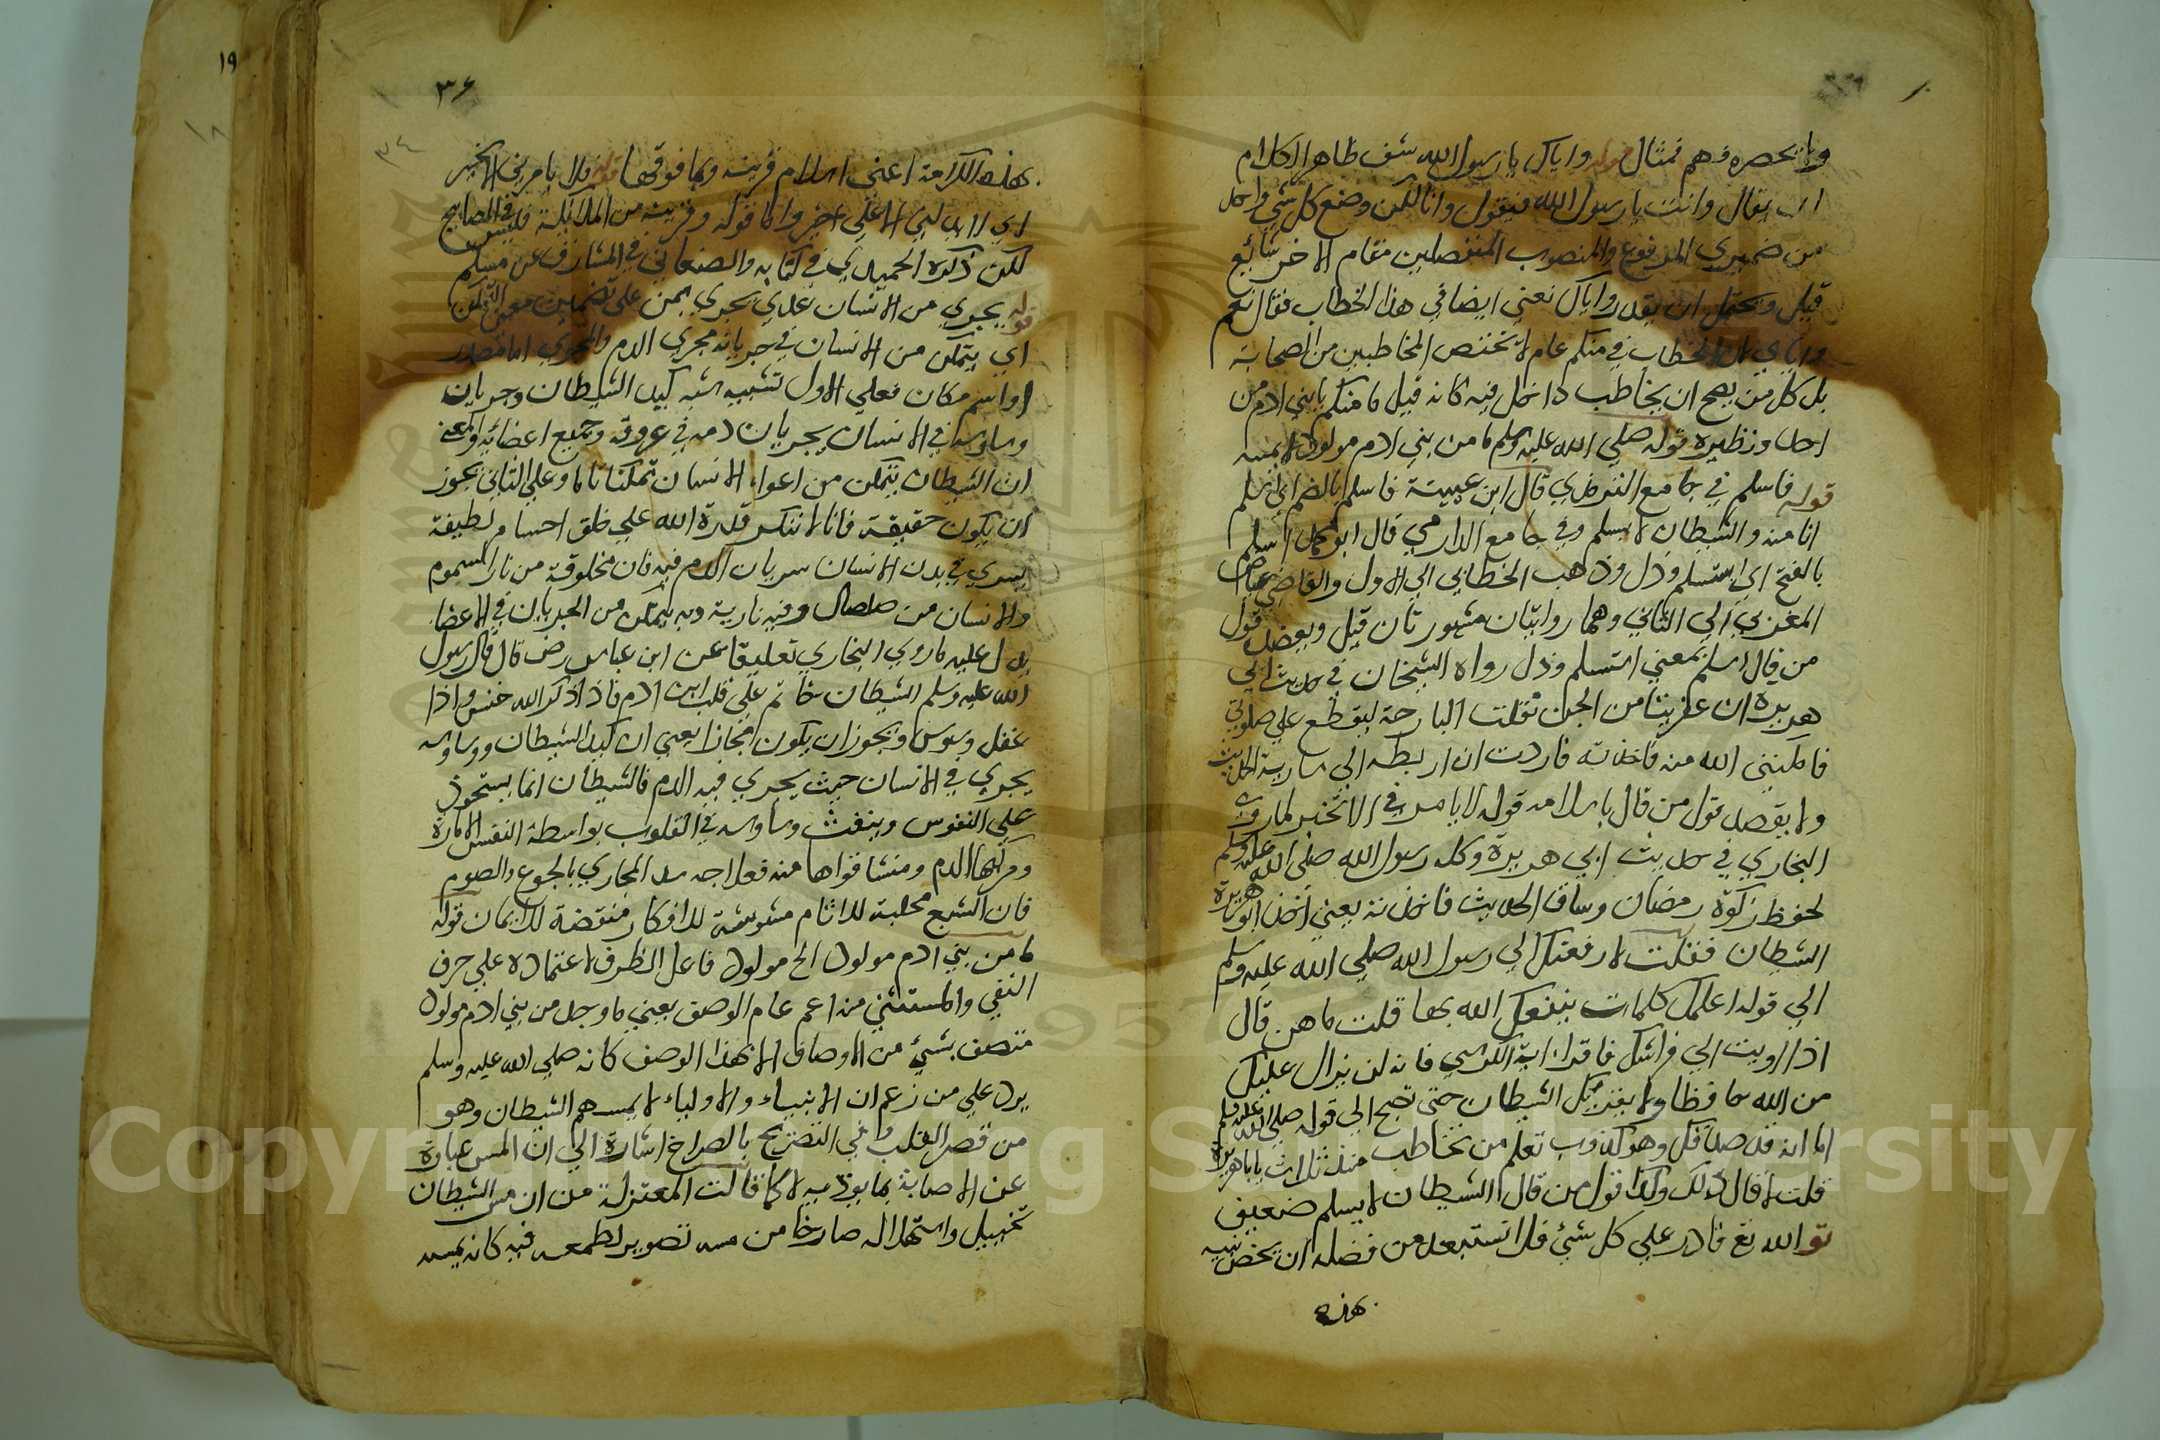 وما يحصره وهم فمثال قوله واياك يا رسول الله شف ظاهر الكلام
ان يقال وانت يا رسول الله فيقول وانا لكن وضع كل شي واحد
من ضميري المرفوع والمنصوب المنفصلين مقام الاخر شائع
قيل ويحتمل ان يقدر واياك نعني ايضا في هذا الخطاب فقال نعم
واياي لان الخطاب في منكم عام لا تختص المخاطبين من الصحابة
بل كل من يصح ان يخاطب داخل فيه كانه قيل ما منكم يا بني ادم من
احد ونظيره قوله صلي الله عليه وسلم ما من بني ادم مولود الا يمسه
قوله فاسلم في جامع الترمذي قال ابن عيينة فاسلم بالضم اي اسلم
انا منه والشيطان لا يسلم وفي جامع الدارمي قال ابو محمد اسلم
بالفتح اي استسلم وذل وذهب الخطابي الي الاول والقاضي عياض
المغربي الي الثاني وهما روايتان مشهورتان قيل ويعضد قول
من قال اسلم بمعني استسلم وذل رواه الشيخان في حديث ابي
هريرة ان عفريتا من الجن تفلت البارحة ليقطع علي صلوتي
فامكنني الله منه فاخذته فاردت ان اربطه الي سارية الحديث
ولا يقصد قول من قال باسلامه قوله لا يامرني الا بخير لما روي
البخاري في حديث ابي هريرة وكله رسول الله صلي الله عليه وسلم
لحفظ زكوة رمضان وساق الحديث فاخذته يعني اخذ ابو هريرة
الشيطان فقلت لارفعنك الي رسول الله صلي الله عليه وسلم
الي قوله اعلمك كلمات ينفعك الله بها قلت ما هن قال
اذا اويت الي فراشك فاقرا اية الكرسي فانه لن يزال عليك
من الله حافظا ولا يقربك الشيطان حتي تصبح الي قوله صلي الله عليه وسلم
اما انه قد صدقك وهو كذوب تعلم من تخاطب منذ ثلاث يا ابا هريرة
قلت لا قال ذلك وكذا قول من قال الشيطان لا يسلم ضعيف
تو الله تع قادر علي كل شئ فلا تستبعد من فضله ان يخص نبيه
هذه
٣٤
بهذه الكرامة اعني اسلام قرينه وبما فوقها قوله فلا يامرني الا بخير
لكن ذكره الحميدي في كتابه والصغاني في المشارق عن مسلم
قوله يجري من الانسان عدي يجري بمن علي تضمين معني التمكن
اي يتمكن من الانسان في جريانه مجري الدم والمجري اما مصدر
او اسم مكان فعلي الاول تشبيه شبه كيد الشيطان وجريان
وساوسه في الانسان بجريان دمه في عروقه وجميع اعضائه والمعني
ان الشيطان يتمكن من اغواء الانسان تمكنا تاما وعلي الثاني يجوز
ان يكون حقيقة فانا لا ننكر قدرة الله علي خلق اجسام لطيفة
يسري في بدن الانسان سريان الدم فيه فان مخلوقة من نار السموم
والانسان من صلصال وفيه نارية وبه يتمكن من الجريان في الاعضا
يدل عليه ما روي البخاري تعليقا عن ابن عباس رض قال قال رسول
الله عليه وسلم الشيطان جاثم علي قلب ابن ادم فاذا ذكر الله خنس واذا
غفل وسوس ويجوز ان يكون مجازا يعني ان كيد الشيطان ووساوسه
يجري في الانسان حيث يجري فيه الدم فالشيطان انما يستحوذ
علي النفوس وينفث وساوسه في القلوب بواسطة النفس الامارة
ومركبها الدم ومنشا قواها منه فعلاجه سد المجاري بالجوع والصوم
فان الشبع مجلبة للاثام مشوشة للافكار منقصة للايمان قوله
ما من بني ادم مولود الخ مولود فاعل الظرف لاعتماده علي حرف
النفي والمستثني منه اعم عام الوصف يعني ما وجد من بني ادم مولود
متصف بشئ من الاوصاف الا بهذا الوصف كانه صلي الله عليه وسلم
يرد علي من زعم ان الانبياء والاولياء لا يمسهم الشيطان وهو
من قصر القلب وفي التصريح بالصراخ اشارة الي ان المس عبارة
عن الاصابة بما يوذيه لا كما قالت المعتزلة من ان مس الشيطان
تخييل واستهلاله صارخا من مسه تصوير لطمعه فيه كانه يمسه
١٩